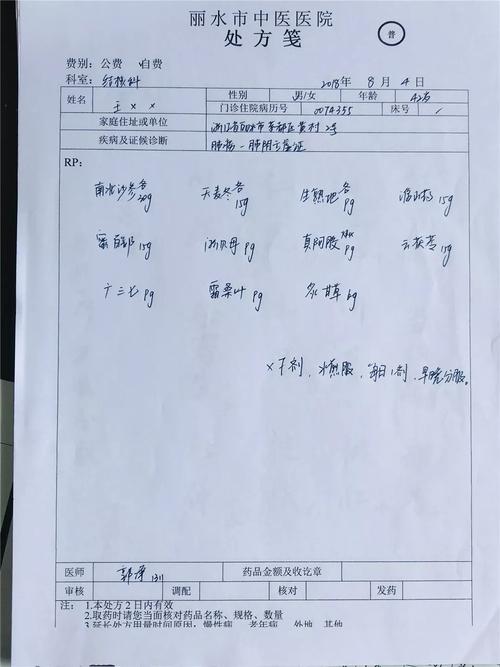 丽水市中医医院
处方笺
普
费别：公费 自费
科室：结核科 2018年 8 月 4 日
姓名 王×× 性别 男/女 年龄 42岁
门诊住院病历号 0074355 床号 /
家庭住址或单位 浙江省丽水市莲都区黄村2号
疾病及证候诊断 肺痨－肺阴亏虚证
RP:
南北沙参各20g 天麦冬各15g 生熟地各9g 淮山药15g
蜜百部15g 浙贝母9g 真阿胶9g 云茯苓15g
广三七9g 霜桑叶9g 炙甘草6g
剂，水煎服，每日1剂，早晚分服。
医师 药品金额及收讫章
审核 调配 核对 发药
注：1.本处方2日内有效
2.取药时请您当面核对药品名称、规格、数量
3.延长处方用量时间原因：慢性病 老年病 外地 其他